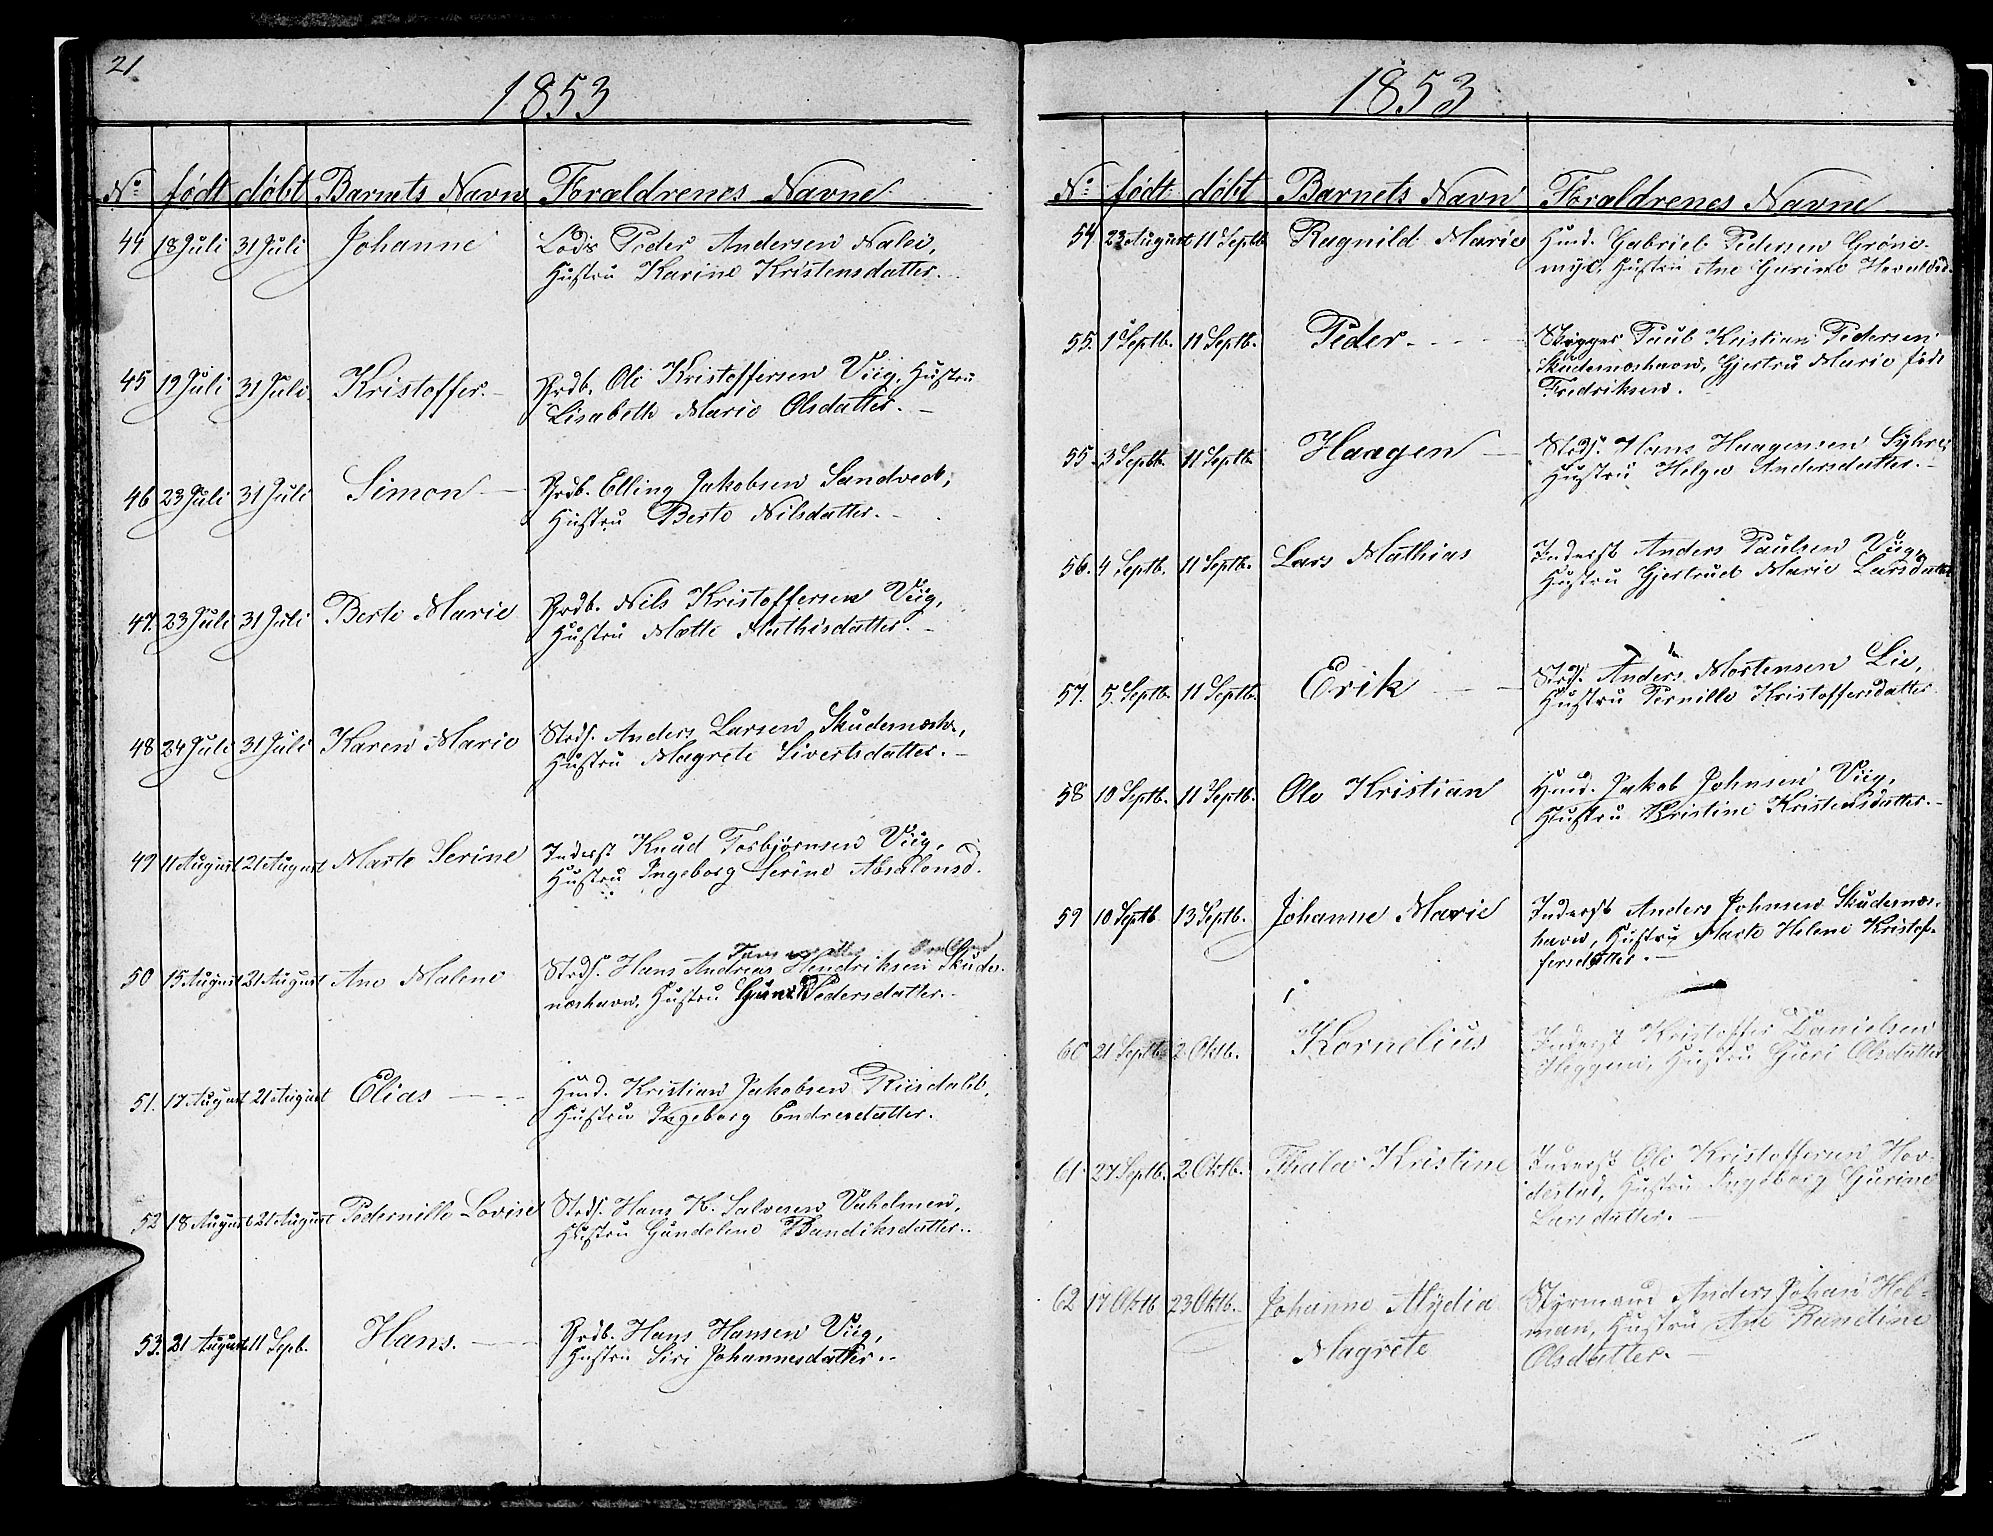 21
1853
No født døbt Barnets Navn Forældrenes Navne
44 18 Juli 31 Juli Johanne Lods Peder Andersen Nalei,
Hustru Karine Kristensdatter.
45 19 Juli 31 Juli Kristoffer. Grdb. Ole Kristoffersen Viig, Hustru
Lisabeth Marie Olsdatter.
46 23 Juli 31 Juli Simon Grdb. Elling Jakobsen Sandved,
Hustru Berte Nilsdatter.
47. 23 Juli 31 Juli Berte Marie Grdb. Nils Kristoffersen Viig,
Hustru Mette Mathisdatter.
48 24 Juli 31 Juli Karen Marie Strds. Anders Larsen Skudernæsh.,
Hustru Magrete Sivertsdatter.
49 11 August 21 August Marte Serine Inderst Knud Torbjørnsen Viig,
Hustru Ingeborg Serine Absalonsd.
50 15 August 21 August Ane Malene Strds. Hans Andreas Hendriksen Skuder-
næshavn, Hustru Pedersdatter.
51. 17 August 21 August Elias Hmd. Kristian Jakobsen Riisdahl,
Hustru Ingeborg Endresdatter.
52 18 August 21 August Pedernille Lovise Strds. Hans K. Salvesen Vaholmen,
Hustru Gundeline Bendiksdatter.
53. 21 August 11 Sepb. Hans. Grdb. Hans Hansen Viig,
Hustru Siri Johannesdatter.
1853
No født døbt Barnets Navn Forældrenes Navne
54 23 August 11 Septb Ragnild Marie Hmd. Gabriel Pedersen Grøne-
myr, Hustru Ane Gurine Havaldsd.
55. 1 Septb. 11 Septb. Peder. Skipper Paul Kristian Pedersen
Skudernæshavn, Gjertru Marie født
Fredriksen.
55. 3 Septb. 11 Septb. Haagen Strds. Hans Haagensen Syhre
Hustru Helga Andersdatter.
56. 4 Septb. 11 Septb. Lars Mathias Inderst Anders Paulsen Viig,
Hustru Gjertrud Marie Larsdatter
57. 5. Septb. 11 Septb. Erik Strds. Anders Mortensen Lie,
Hustru Pernille Kristoffersdatter
58 10 Septb. 11 Septb. Ole Kristian Hmd. Jakob Johnsen Viig,
Hustru Kristine Kristensdatter.
59 10 Septb 13 Septb. Johanne Marie Inderst Anders Johnsen Skudernæs-
havn, Hustru Marte Helene Kristof-
fersdatter.
60 21 Septb. 2 Oktb. Kornelius Inderst Kristoffer Danielsen
Heggem, Hustru Guri Olsdatter
61. 27 Septb. 2 Oktb. Thalea Kristine Inderst Ole Kristoffersen Hov-
destad, Hustru Ingeborg Gurine
Larsdatter.
62 17 Oktb 23 Oktb. Johanne Alydia Styrmand Anders Johan Hel-
Magrete man, Hustru Ane Rundine
Olsdatter.